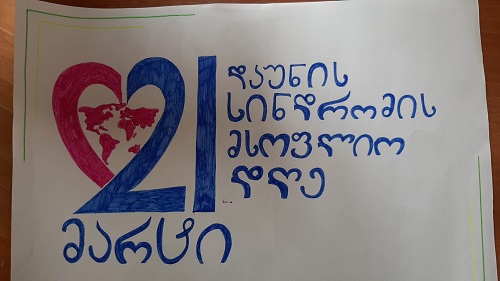 21
მარტი
დაუნის
სინდრომის
მსოფლიო
დღე